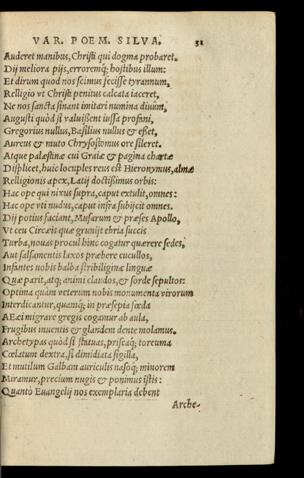 VAR. POEM. SILVA. 31
Auderet manibus, Christi qui dogma probaret.
Dij meliora pijs, erroremq; hostibus illum:
Et dirum quod nos scimus fecisse tyrannum,
Relligio vt Christi penitus calcata iaceret,
Ne nos sancta sinant imitari numina diuûm,
Augusti quòd si valuißent iussa profini,
Gregorius nullus, Basilius nullus & eßet,
Aureus & muto Chrysostomus ore sileret.
Atque palæstinæ cui Graiæ & pagina chartæ
Displicet, huic locuples reus est Hieronymus, almæ
Relligionis apex, Latij doctißimus orbis:
Hac ope qui nixus supra, caput extulit, omnes:
Hac ope vti nudus, caput infra subijcit omnes.
Dij potius faciant, Musarum & præses Apollo,
Vt ceu Circæis quæ grunijt ebria succis
Turba, nouas procul hinc cogatur quærere sedes,
Aut salsamentis laxos præbere cucullos,
Infantes nobis balba stribiliginæ linguæ
Quæ parit, atq; animi claudos, & sorde sepultos:
Optima quàm veterum nobis monumenta virorum
Interdicantur, quamq; in præsepia fœda
AEæi migrare gregis cogamur ab aula,
Frugibus inuentis & glandem dente molamus.
Archetypas quòd si statuas, priscaq; toreuma
Cœlatum dextra, si dimidiata sigilla,
Et mutilum Galbam auriculis nasoq; minorem
Miramur, precium nugis & ponimus istis:
Quantò Euangelij nos exemplaria debent
Arche-